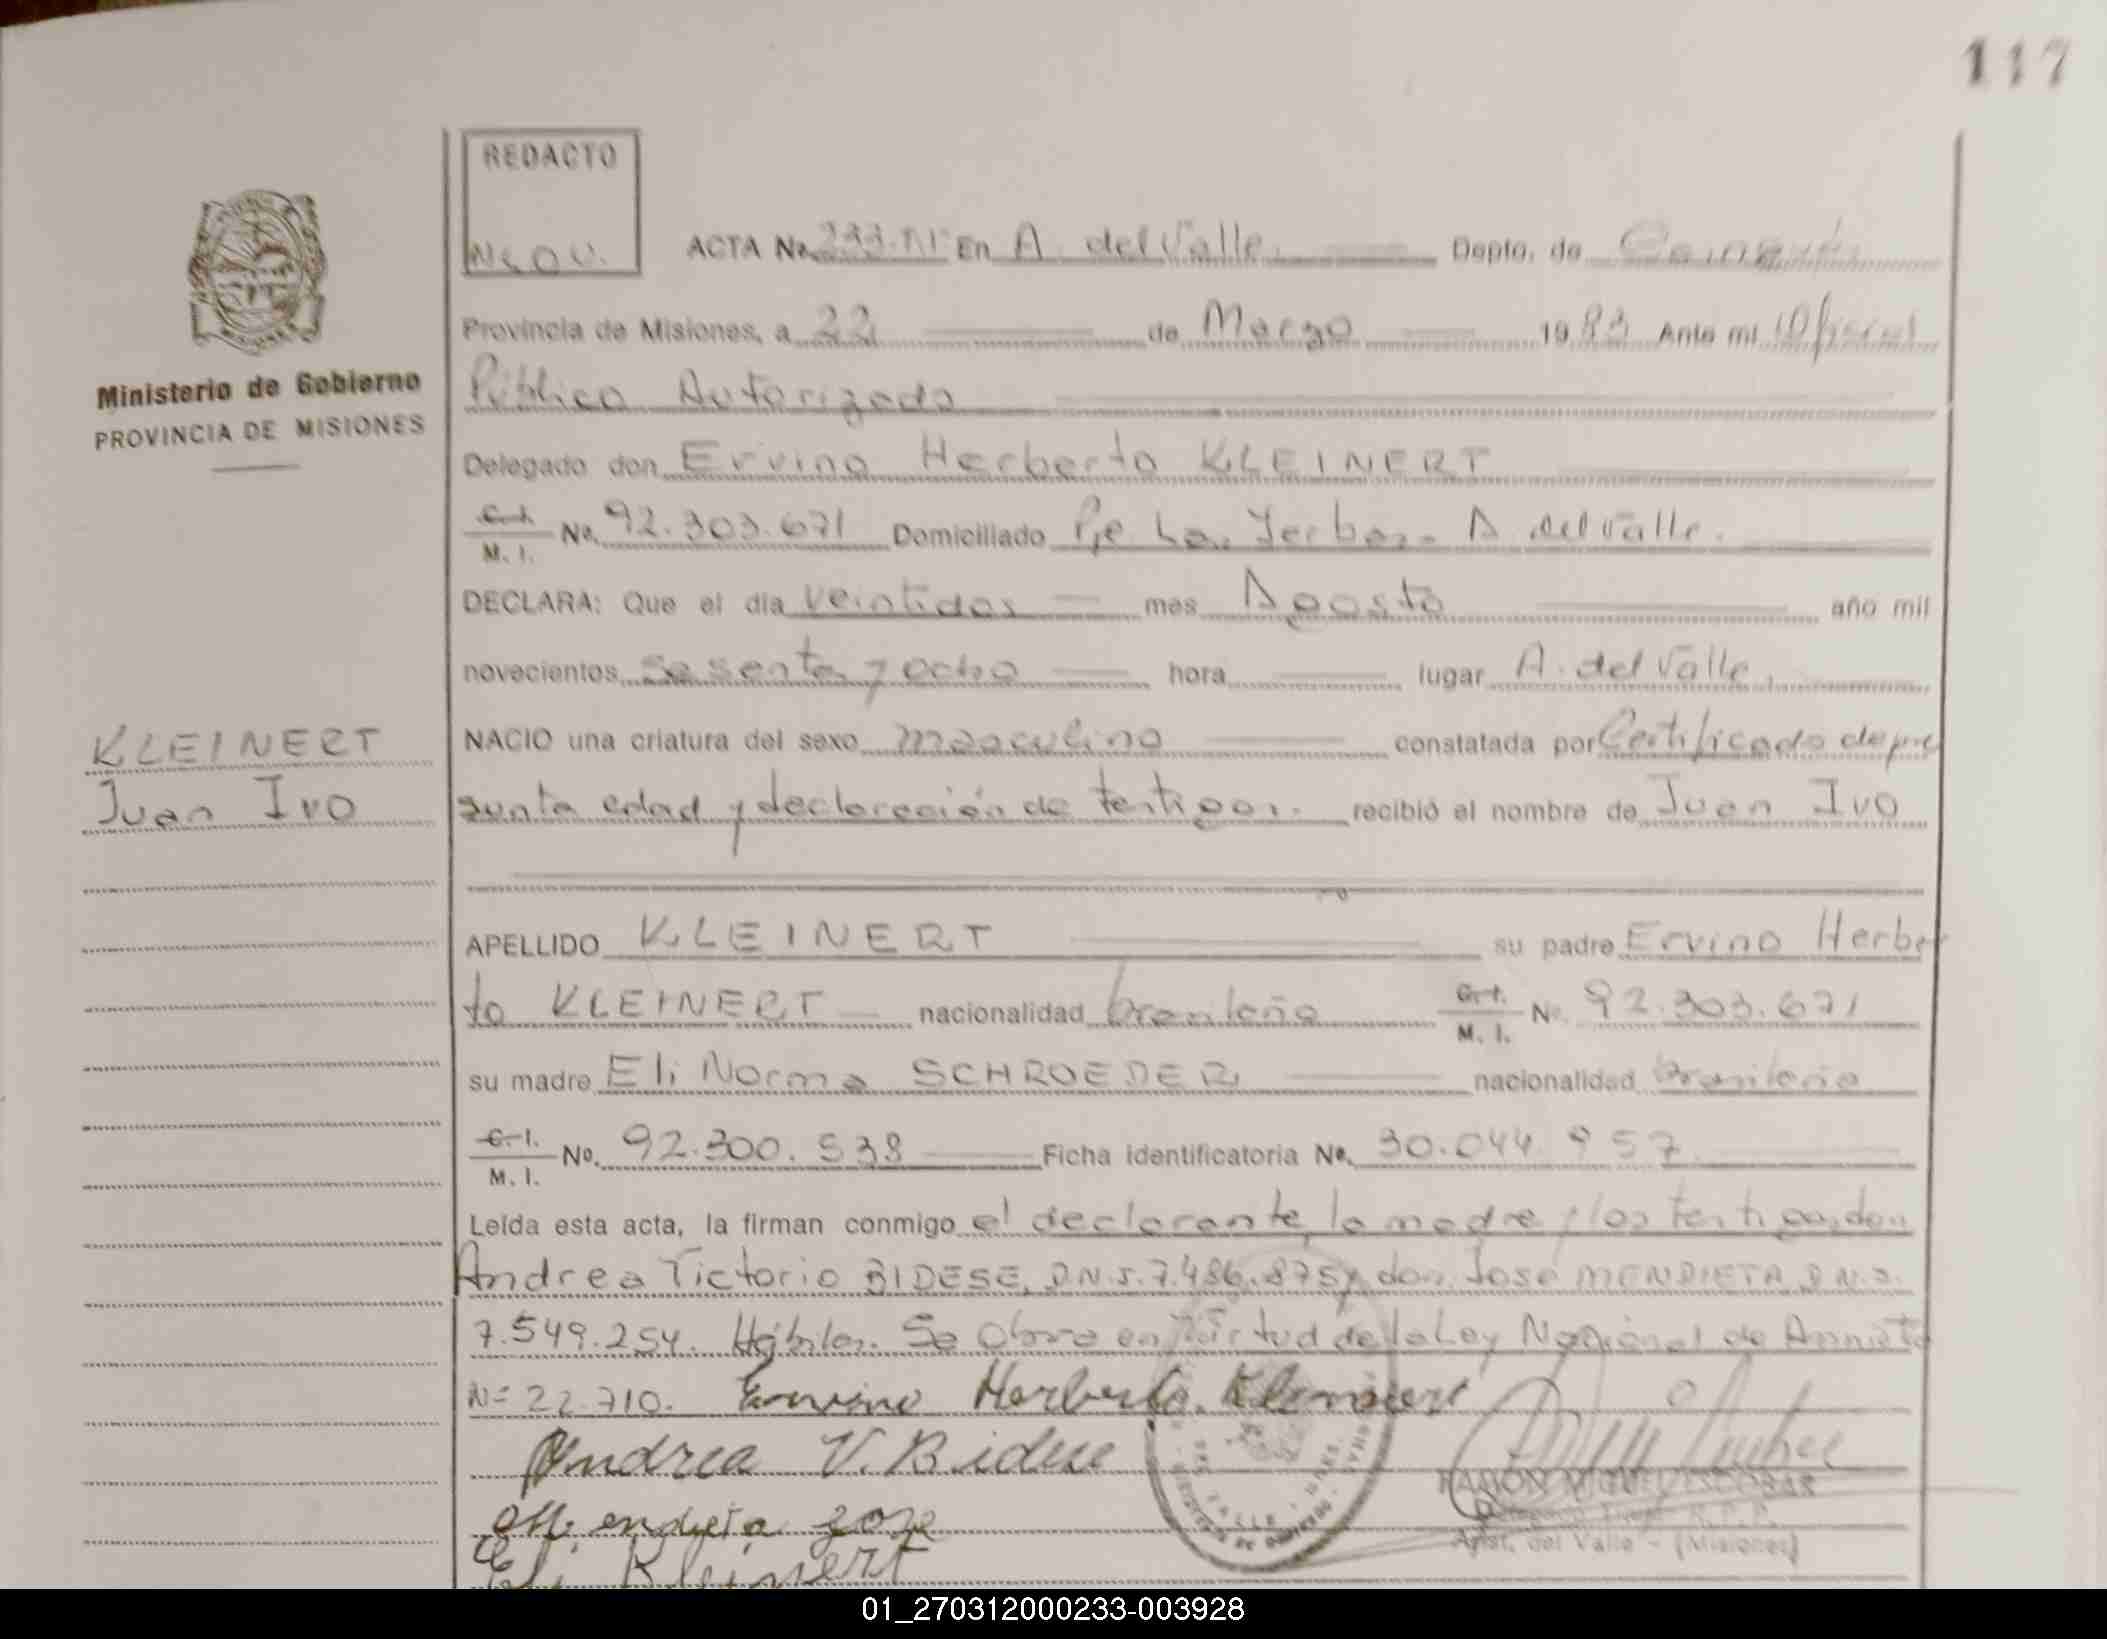 117
REDACTO
ACTA No. 233. En A. del Valle. Depto. de
Provincia de Misiones, a 22 de Marzo 1983 Ante mi Oficial
Público Autorizado
Ministerio de Gobierno
PROVINCIA DE MISIONES
Delegado don Ervino Herberto KLEINERT
C. I. M. I. No. 92.303.671 Domiciliado Pje La Yerba. A del Valle.
DECLARA: Que el día veintidos mes Agosto año mil
novecientos sesenta y ocho hora lugar A. del Valle.
KLEINERT
Juan Ivo
NACIO una criatura del sexo masculino constatada por Certificado de pre
sunta edad y declaración de testigos. recibió el nombre de Juan Ivo
APELLIDO KLEINERT su padre Ervino Herber
to KLEINERT nacionalidad brasileña C. I. M. I. No. 92.303.671
su madre Eli Norma SCHROEDER nacionalidad brasileña
C. I. M. I. No. 92.300.538 Ficha identificatoria No. 30.044.957
Leída esta acta, la firman conmigo el declarante, la madre y los testigos, don
Andrea Victorio BIDESE, D.N.I. 7.486.875 y don José MENDIETA, D.N.I.
7.549.254. Hábiles. Se labra en virtud de la Ley Nacional de Amnistía
Nº 22.710. Ervino Herberto Kleinert
Andrea V. Bidese
Mendieta Jose
Eli Kleinert
RAMON MIGUEL ESCOBAR
Delegado Titular R.P.P.
Arist. del Valle - (Misiones)
01_270312000233-003928